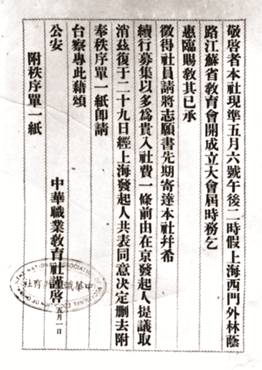 敬啓者本社現準五月六號午後二時假上海西門外林蔭
路江蘇省教育會開成立大會屆時務乞
惠臨賜敎其已承
徵得社員請將志願書先期寄達本社幷希
續行募集以多爲貴入社費一條前由在京發起人提議取
消茲復于二十九日經上海發起人共表同意決定刪去附
奉秩序單一紙卽請
台察專此藉頌
公安
中華職業敎育社謹啓 五月一日
附秩序單一紙